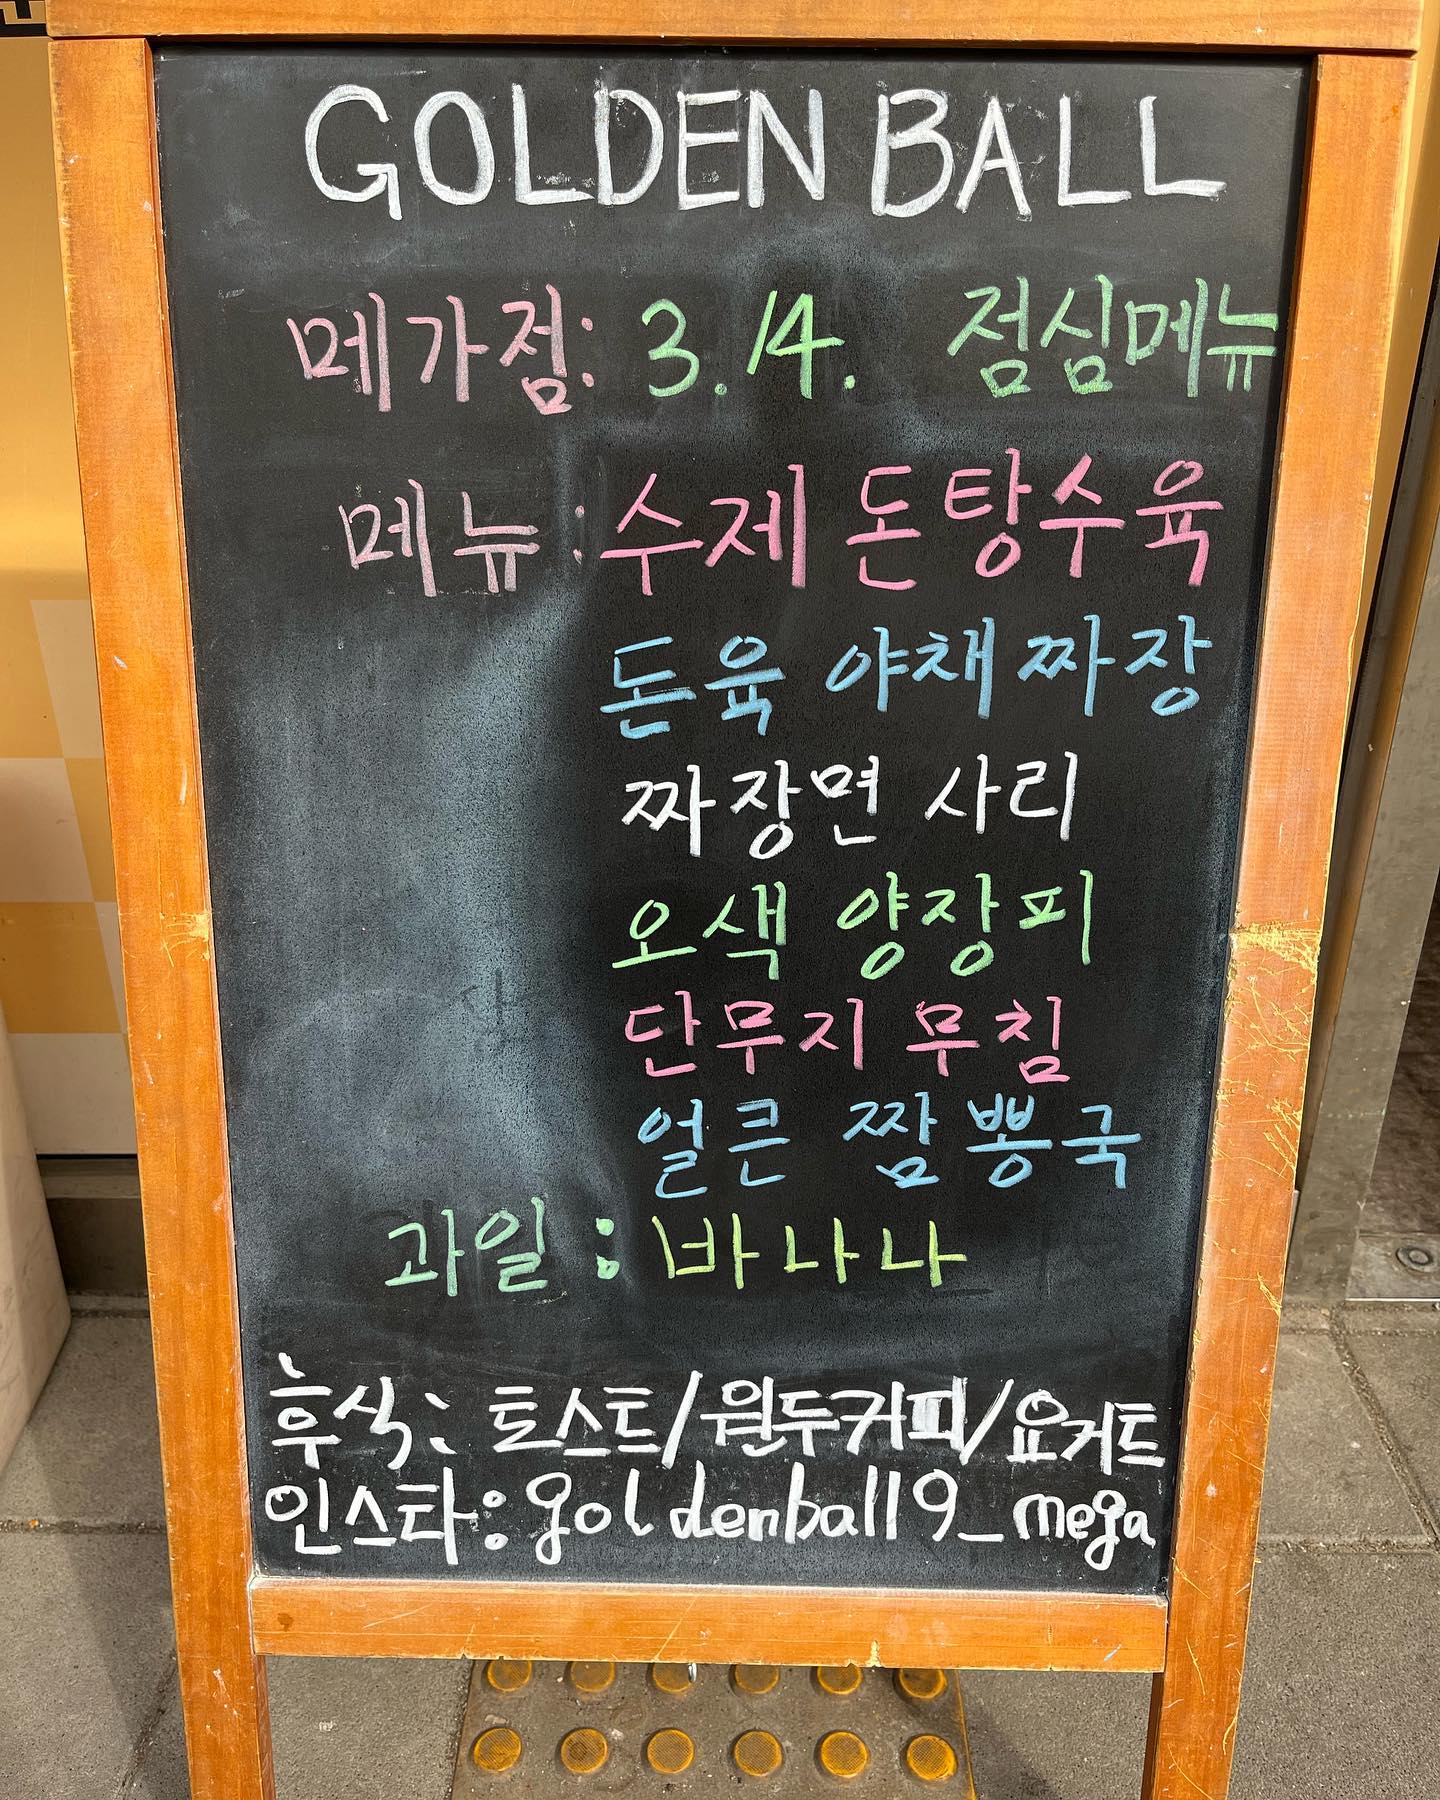 GOLDEN BALL
메가점: 3.14. 점심메뉴
메뉴: 수제 돈탕수육
돈육 야채짜장
짜장면 사리
오색 양장피
단무지 무침
얼큰 짬뽕국
과일: 바나나
후식: 토스트/원두커피/요거트
인스타: goldenball19_mega